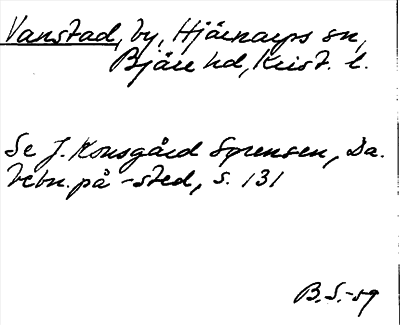 Vanstad, by, Hjärnarps sn,
Bjäre hd, Krist. l.
Se J. Kousgård Sørensen, Da.
bebn. på -sted, s. 131
B.S.-59